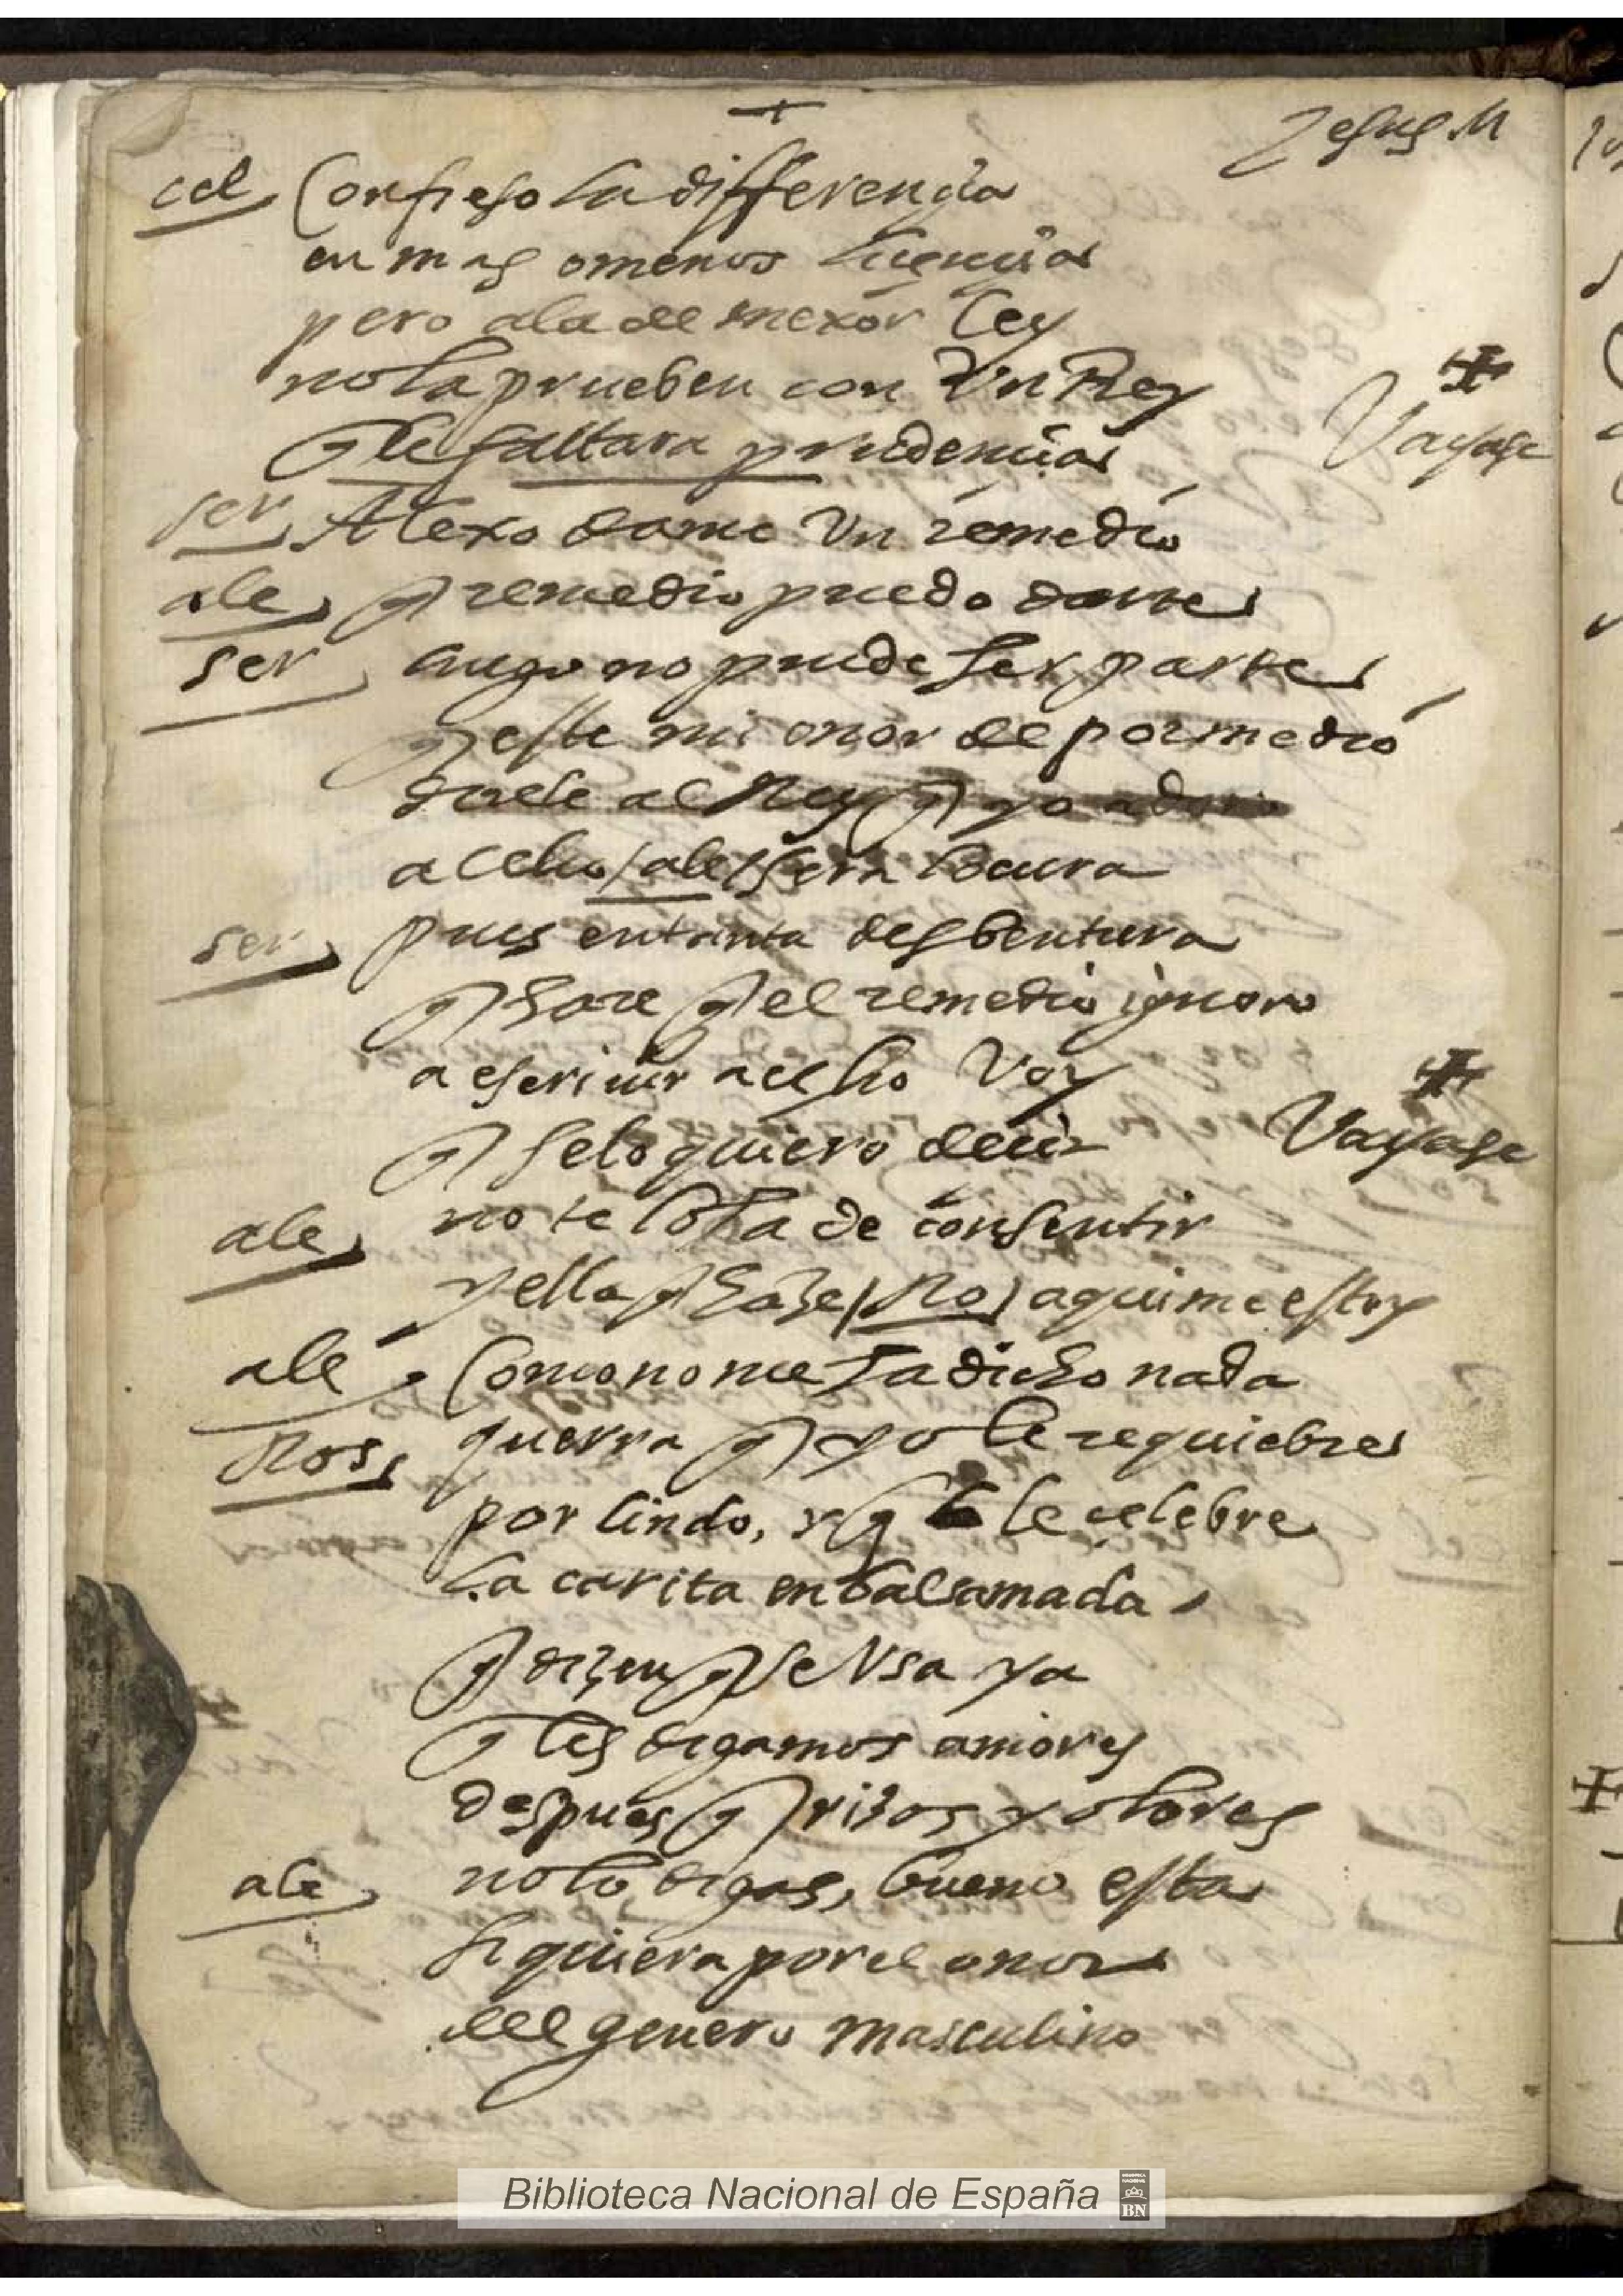 Jesus M
cel Confieso la differençia
en mas o menos liçençia
pero a la de mexor ley
no la prueben con Vn Rey
q le faltara prudençia
Vayase
ser Alexo dame Vn remedio
ale q remedio puedo darte
ser luego no puede ser parte
q este mi onor de por medio
darle al Rey q yo adoro
a Celio / ale / sera locura
ser pues en tanta desbentura
q hare q el remedio ignoro
a escriuir a Celio Voy
q se lo quiero decir
Vayase
ale no te lo ha de consentir
y ella q haze / Ro / aqui me estoy
ale Como no me ha dicho nada
Ros querra q yo le requiebre
por lindo, y q le celebre
la carita enbalsamada
q dizen q se Vsa ya
q les digamos amores
despues q rizos y olores
ale no lo digas, bueno esta
siquiera por el onor
del genero masculino
Biblioteca Nacional de España
BIBLIOTECA NACIONAL
BN